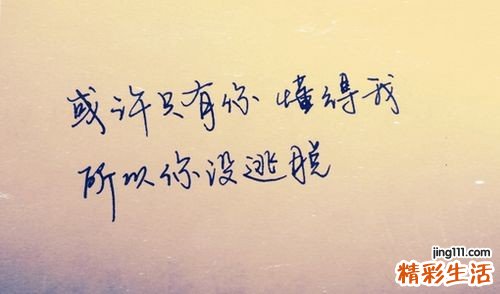 或许只有你 懂得我
所以你没逃脱
jing111.com
精彩生活